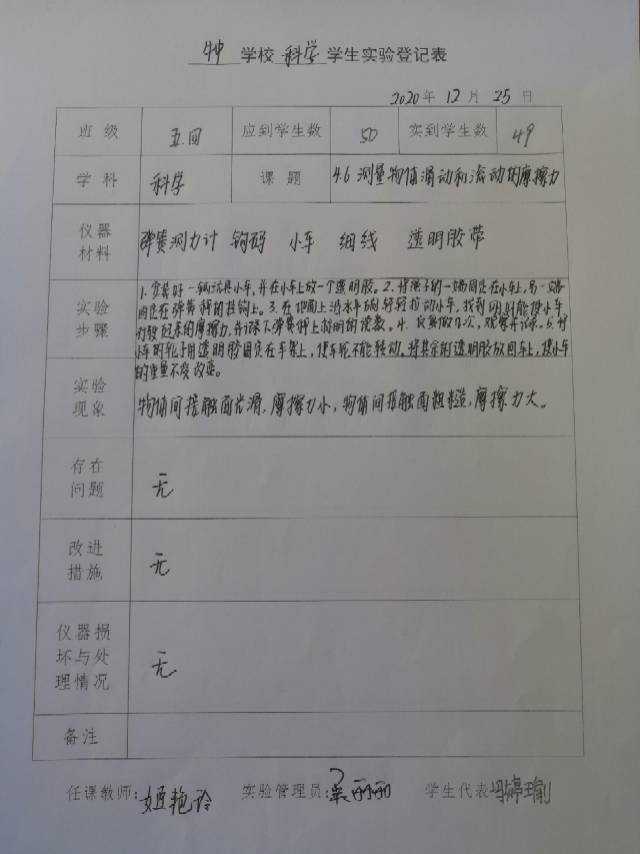 学校 科学 学生实验登记表
2020年 12 月 25 日
班级 五.四 应到学生数 50 实到学生数 49
学科 科学 课题 4.6 测量物体滑动和滚动的摩擦力
仪器材料 弹簧测力计 钩码 小车 细线 透明胶带
实验步骤 1.安装好一辆玩具小车,并在小车上放一个透明胶。2.将绳子的一端固定在小车上,另一端
固定在弹簧秤的挂钩上。3.在桌面上沿水平向轻轻拉动小车,找到刚好能使小车
行驶起来的摩擦力,并记录下弹簧秤上指明的读数。4.反复做几次,观察并记录。5.将
小车的轮子用透明胶固定在车架上,使车轮不能转动。将其余的透明胶放回车上,使小车
的重量不变改变。
实验现象 物体间接触面光滑,摩擦力小,物体间接触面粗糙,摩擦力大。
存在问题 无
改进措施 无
仪器损坏与处理情况 无
备注
任课教师: 姬艳玲 实验管理员: 丽丽 学生代表